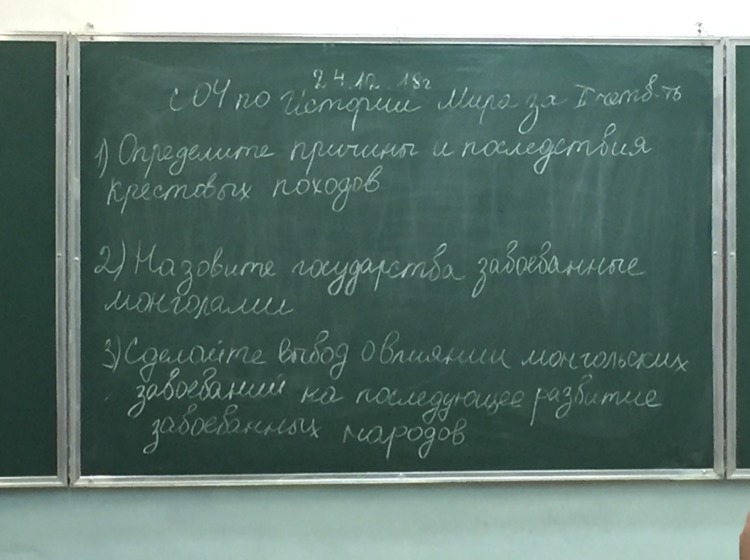 24.12 18г
СОЧ по Истории Мира за II четв-ть
1) Определите причины и последствия
крестовых походов
2) Назовите государства завоеванные
монголами
3) Сделайте вывод о влиянии монгольских
завоеваний на последующее развитие
завоеванных народов